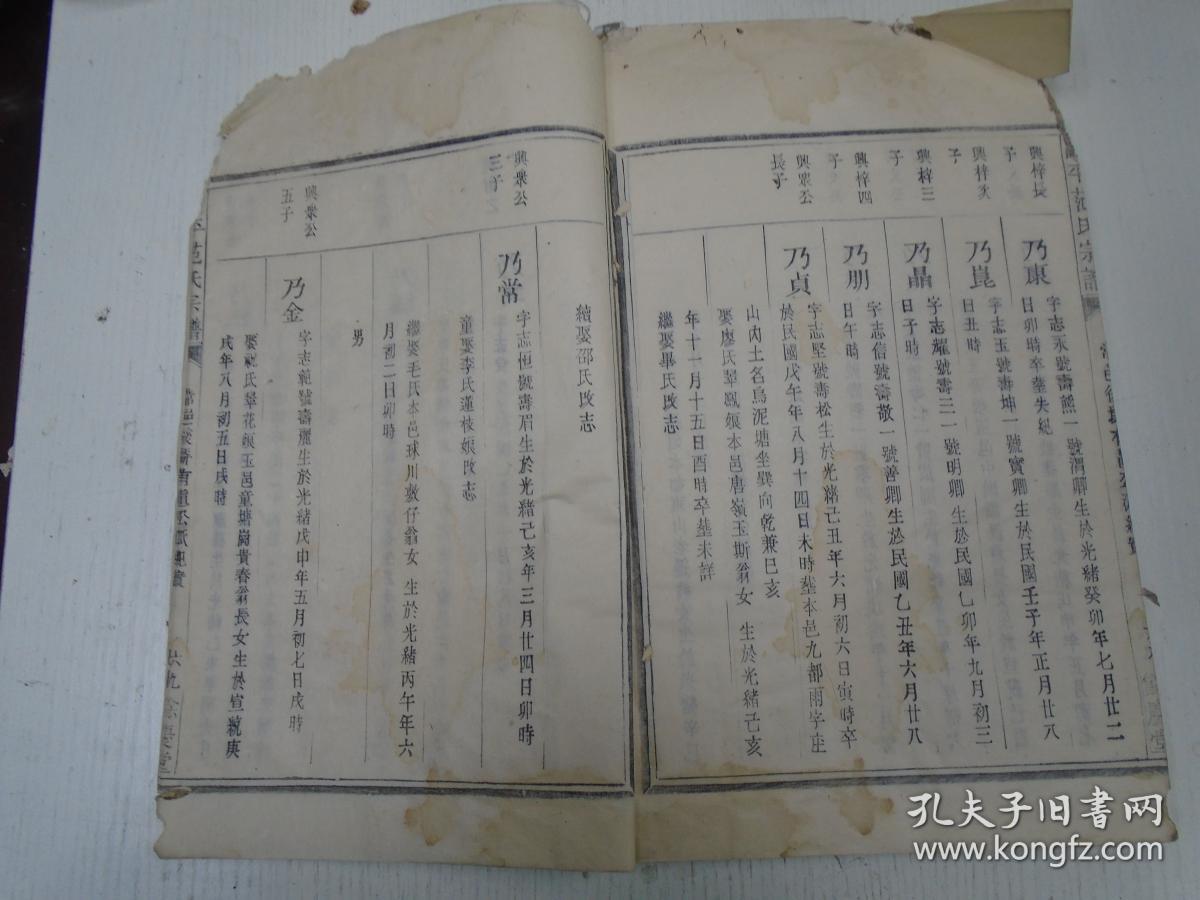 興梓長
子
乃康
字志永號壽熊一號渭卿生於光緒癸卯年七月廿二
日卯時卒塟失紀
興梓次
子
乃崑
字志玉號壽坤一號寶卿生於民國壬子年正月廿八
日丑時
興梓三
子
乃晶
字志耀號壽三一號明卿生於民國乙卯年九月初三
日子時
興梓四
子
乃朋
字志信號壽敬一號善卿生於民國乙丑年六月廿八
日午時
興衆公
長子
乃貞
字志堅號壽松生於光緒己丑年六月初六日寅時卒
於民國戊午年八月十四日未時塟本邑九都雨字庄
山內土名烏泥塘坐巽向乾兼巳亥
娶廖氏翠鳳娘本邑唐嶺玉斯翁女生於光緒己亥
年十一月十五日酉時卒塟未詳
繼娶畢氏改志
續娶邵氏改志
興衆公
三子
乃常
字志恒號壽眉生於光緒己亥年三月廿四日卯時
童娶李氏蓮枝娘改志
繼娶毛氏本邑球川敦仔翁女生於光緒丙午年六
月初二日卯時
男
興衆公
五子
乃金
字志範號壽麗生於光緒戊申年五月初七日戌時
娶祝氏翠花娘玉邑童塘崗貴春翁長女生於宣統庚
戌年八月初五日戌時
范氏宗譜
餘慶堂
孔夫子旧書网
www.kongfz.com